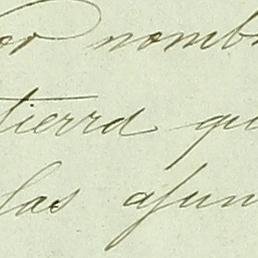 por nomb
tierra qu
las asun